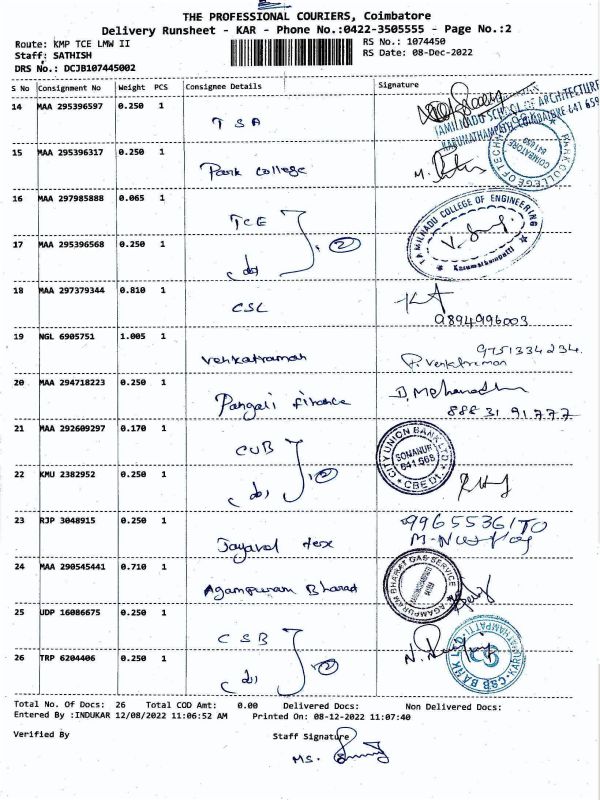 THE PROFESSIONAL COURIERS, Coimbatore
Delivery Runsheet - KAR - Phone No.:0422-3505555 - Page No.:2
Route: KMP TCE LMW II
RS No.: 1074450
Staff: SATHISH
RS Date: 08-Dec-2022
DRS No.: DCJB107445002
S No Consignment No Weight PCS Consignee Details Signature
14 MAA 295396597 0.250 1 TSA
TAMILNADU SCHOOL OF ARCHITECTURE
KARUMATHAMPATTI, COIMBATORE 641 659
15 MAA 295396317 0.250 1 Park College
PARK COLLEGE OF TECHNOLOGY COIMBATORE 641 659
16 MAA 297985888 0.065 1 TCE
TAMILNADU COLLEGE OF ENGINEERING Karumathampatti
17 MAA 295396568 0.250 1 (do) 2
18 MAA 297379344 0.810 1 CSL
9894996003
19 NGL 6905751 1.005 1 Venkatraman P. Venkatraman
9751334234.
20 MAA 294718223 0.250 1 Pangali finance
21 MAA 292609297 0.170 1 CUB
CITY UNION BANK LTD. SOMANUR 641 668 CBE Dt.
22 KMU 2382952 0.250 1 (do) 2
23 RJP 3048915 0.250 1 Jayavel tex
24 MAA 290545441 0.710 1 Agampuram Bharat
AGAMPURAM BHARAT GAS SERVICE
25 UDP 16086675 0.250 1 CSB
CSB BANK LTD KARUMATHAMPATTI
26 TRP 6204406 0.250 1 (do) 2
Total No. Of Docs: 26 Total COD Amt: 0.00 Delivered Docs: Non Delivered Docs:
Entered By :INDUKAR 12/08/2022 11:06:52 AM Printed On: 08-12-2022 11:07:40
Verified By Staff Signature
MS.